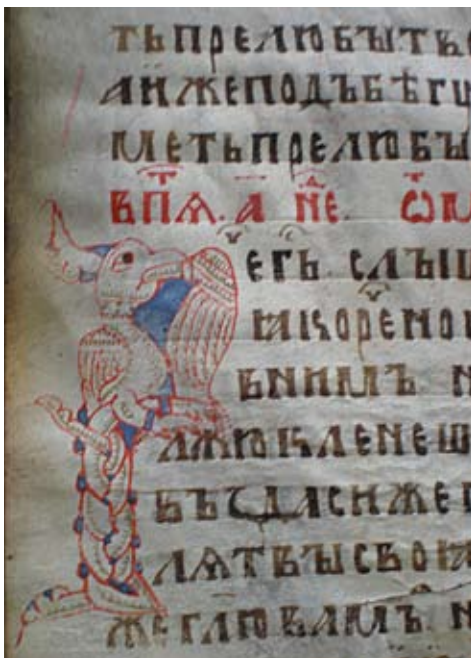 тьпрелюбытв
аижеподъбѣг
иметьпрелюбы
в п҃ѧ. а҃ не҃. ѿм
егь слыш
ꙗкорено
внимъ н
лжюкленеш
въздасиже
лѧтвысвоꙗ
жеглювамъ. н